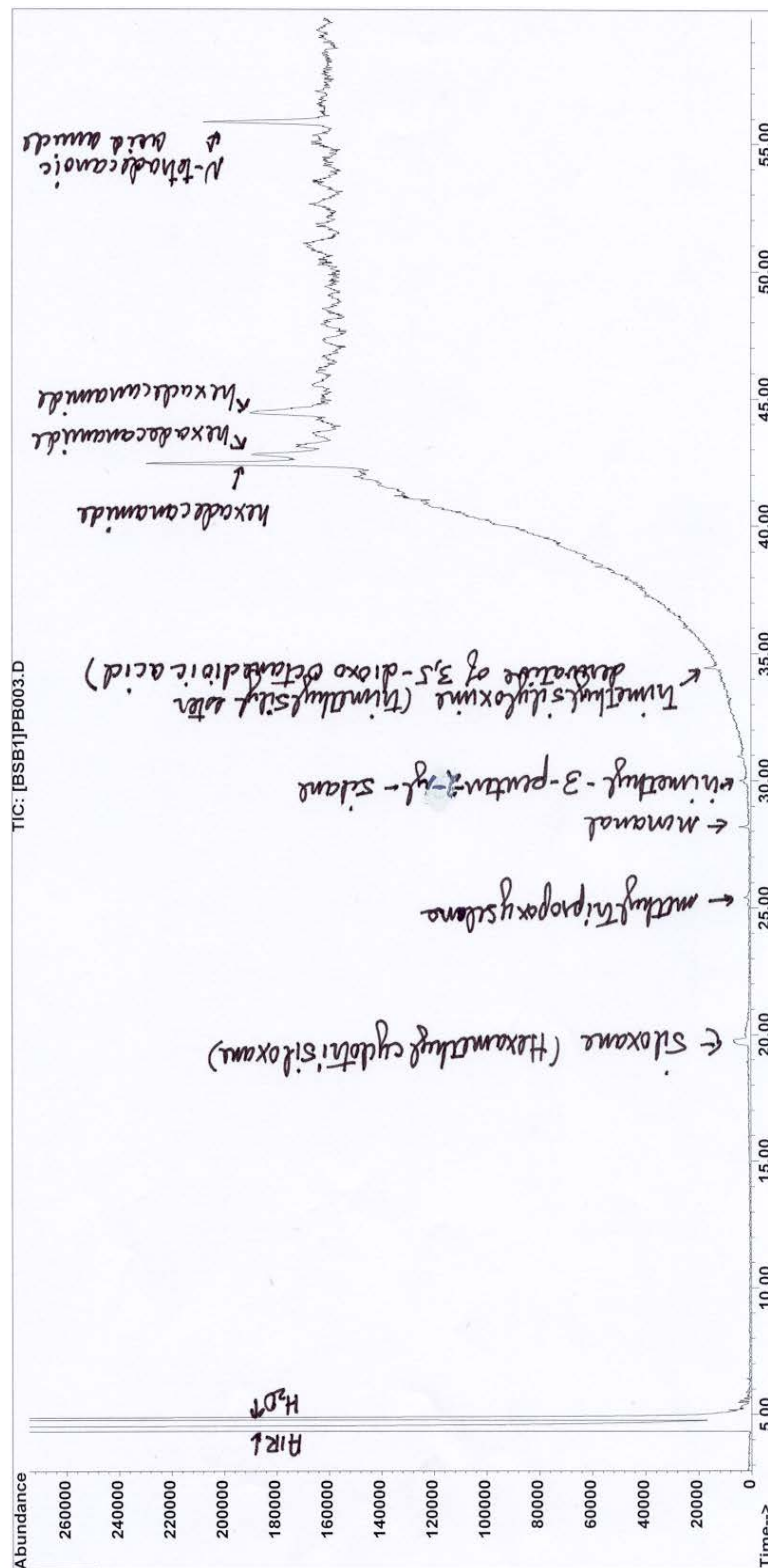 TIC: [BSB1]PB003.D
Abundance
260000
240000
220000
200000
180000
160000
140000
120000
100000
80000
60000
40000
20000
0
Time-->
5.00
10.00
15.00
20.00
25.00
30.00
35.00
40.00
45.00
50.00
55.00
AIR↓
H₂O↑
← Siloxane (Hexamethylcyclotrisiloxane)
← methyltripropoxysilane
← nonanal
← trimethyl-3-penten-2-yl-silane
← Trimethylsilyloxime (trimethylsilyl ester
derivative of 3,5-dioxo octanedioic acid)
hexadecanamide
hexadecanamide
hexadecanamide
N-tetradecanoic
acid amide